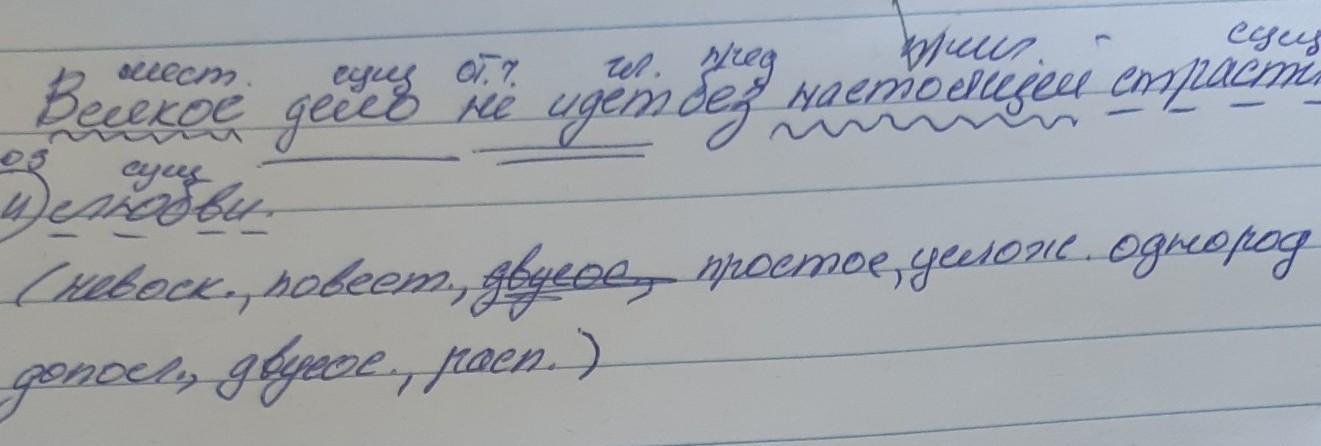 мест. сущ от.ч. гл. пред прил. - сущ
Всякое дело не идет без настоящей страсти
юз сущ
и) любви.
(невоск., повест., двусос, простое, услож. однород
допол., двусос., расп.)